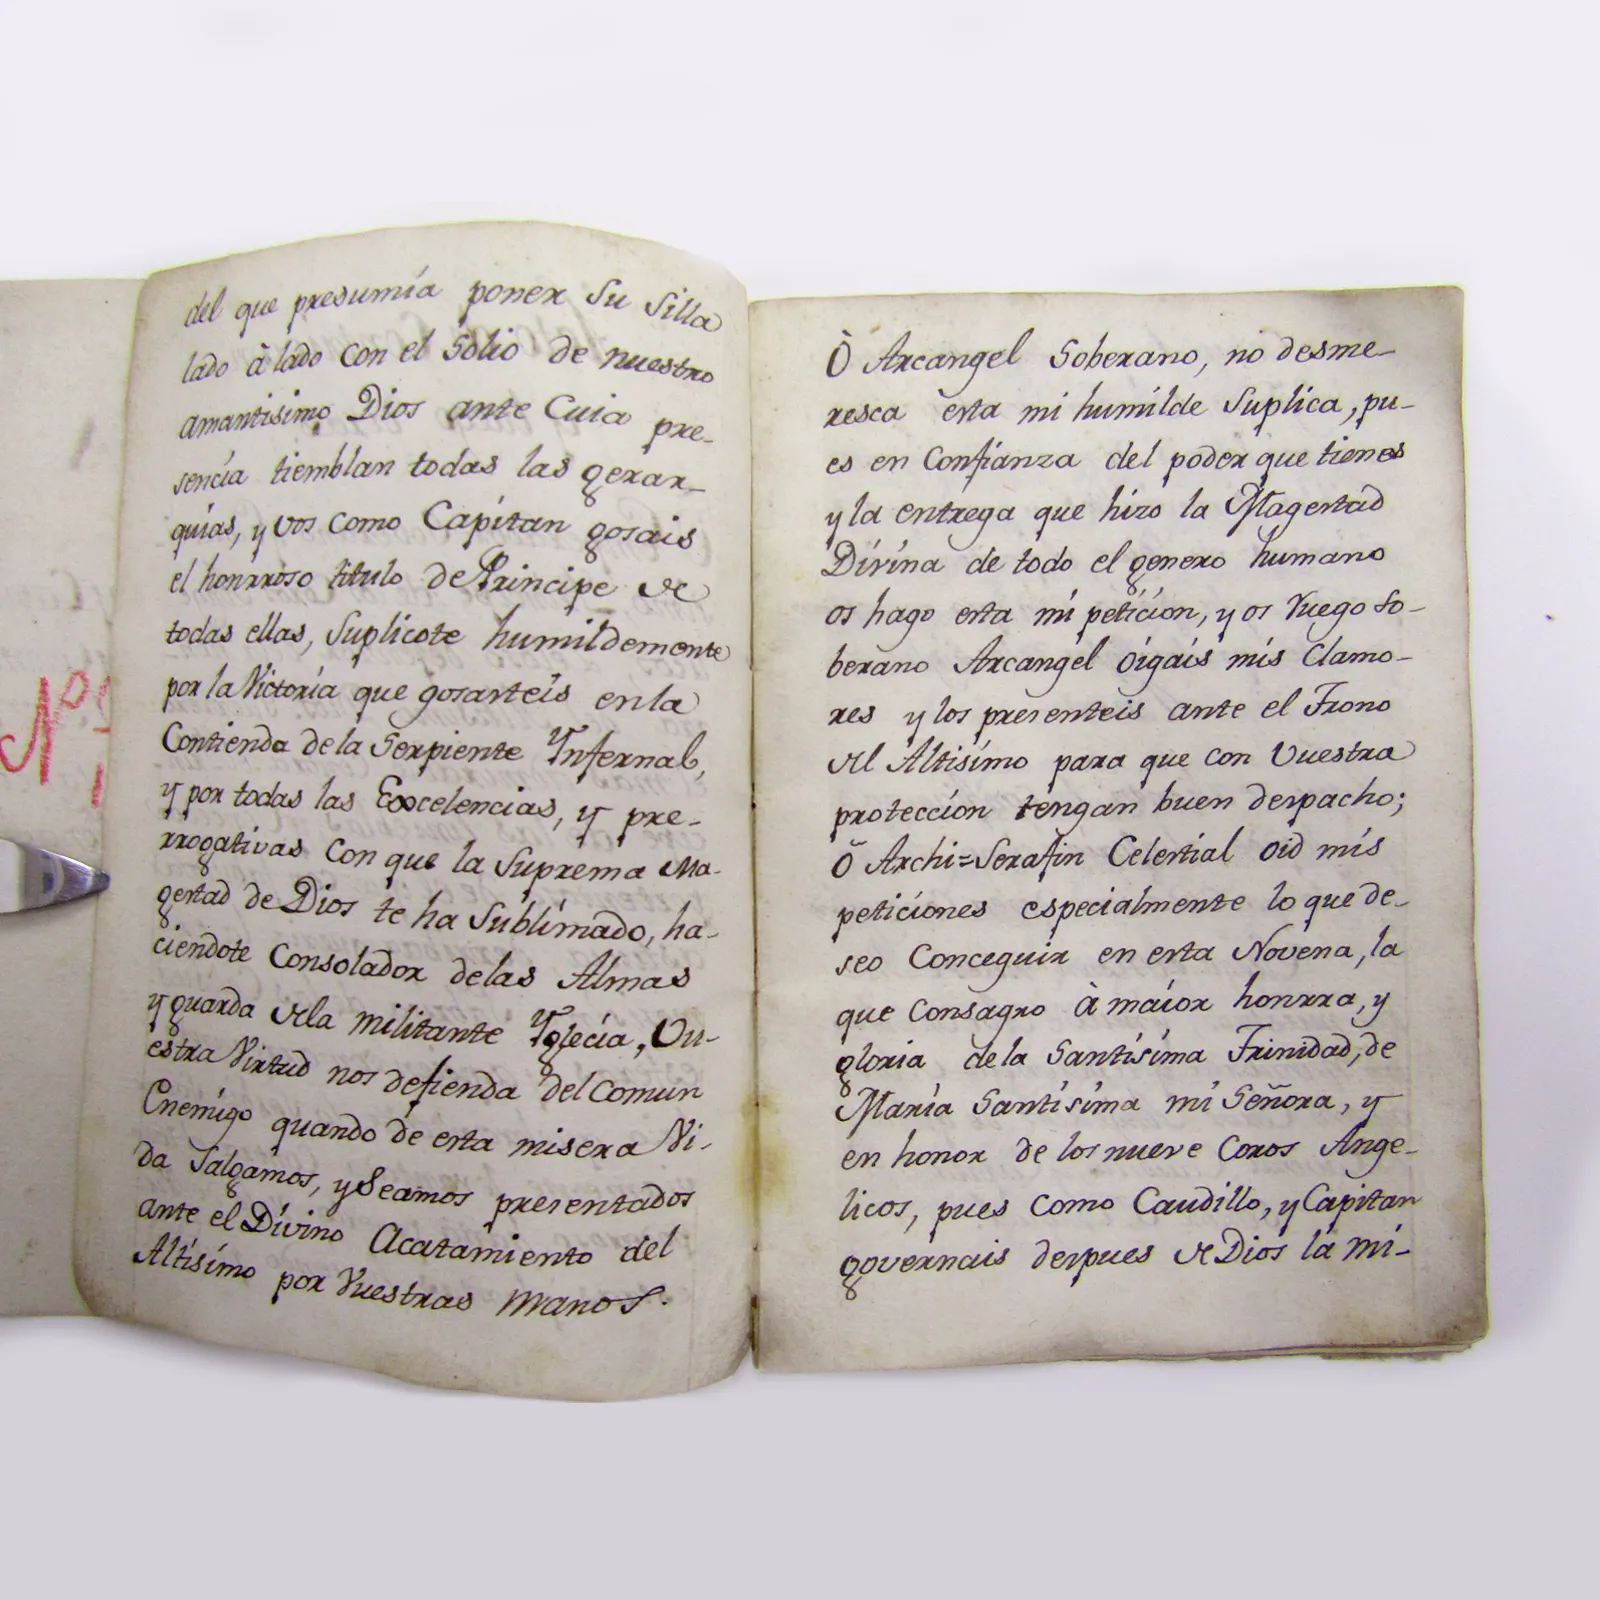 del que presumía poner Su Silla
lado à lado con el Solio de nuestro
amantisimo Dios ante Cuia pre-
sencía tiemblan todas las gerar-
quías, y vos como Capítan gosais
el honrroso titulo de Principe de
todas ellas, Suplicote humildemente
por la Victoría que gosasteís en la
Contienda de la Serpiente Ynfernal,
y por todas las Excelencias, y pre-
rrogativas con que la Suprema Ma-
gestad de Dios te ha Sublímado, ha-
ciendote Consolador de las Almas
y guarda de la militante Yglecía, Vu-
estra Virtud nos defienda del Comun
Enemígo quando de esta misera Vi-
da Salgamos, y Seamos presentados
ante el Divino Acatamiento del
Altísímo por Vuestras manos.
Ò Arcangel Soberano, no desme-
resca esta mi humilde Suplica, pu-
es en Confianza del poder que tienes
y la entrega que hizo la Magestad
Dívína de todo el genero humano
os hago esta mi petícíon, y os Ruego So-
berano Arcangel óigais mis Clamo-
res y los presenteis ante el Trono
del Altisímo para que con Vuestra
proteccíon tengan buen despacho;
Õ Archi=Serafin Celestial oid mis
peticíones especialmente lo que de-
seo Conceguir en esta Novena, la
que Consagro à maíor honrra, y
gloria de la Santísíma Trinidad, de
María Santísíma mi Señora, y
en honor de los nueve Coros Ange-
licos, pues como Caudillo, y Capitan
governais despues de Dios la mi-
Nº 1